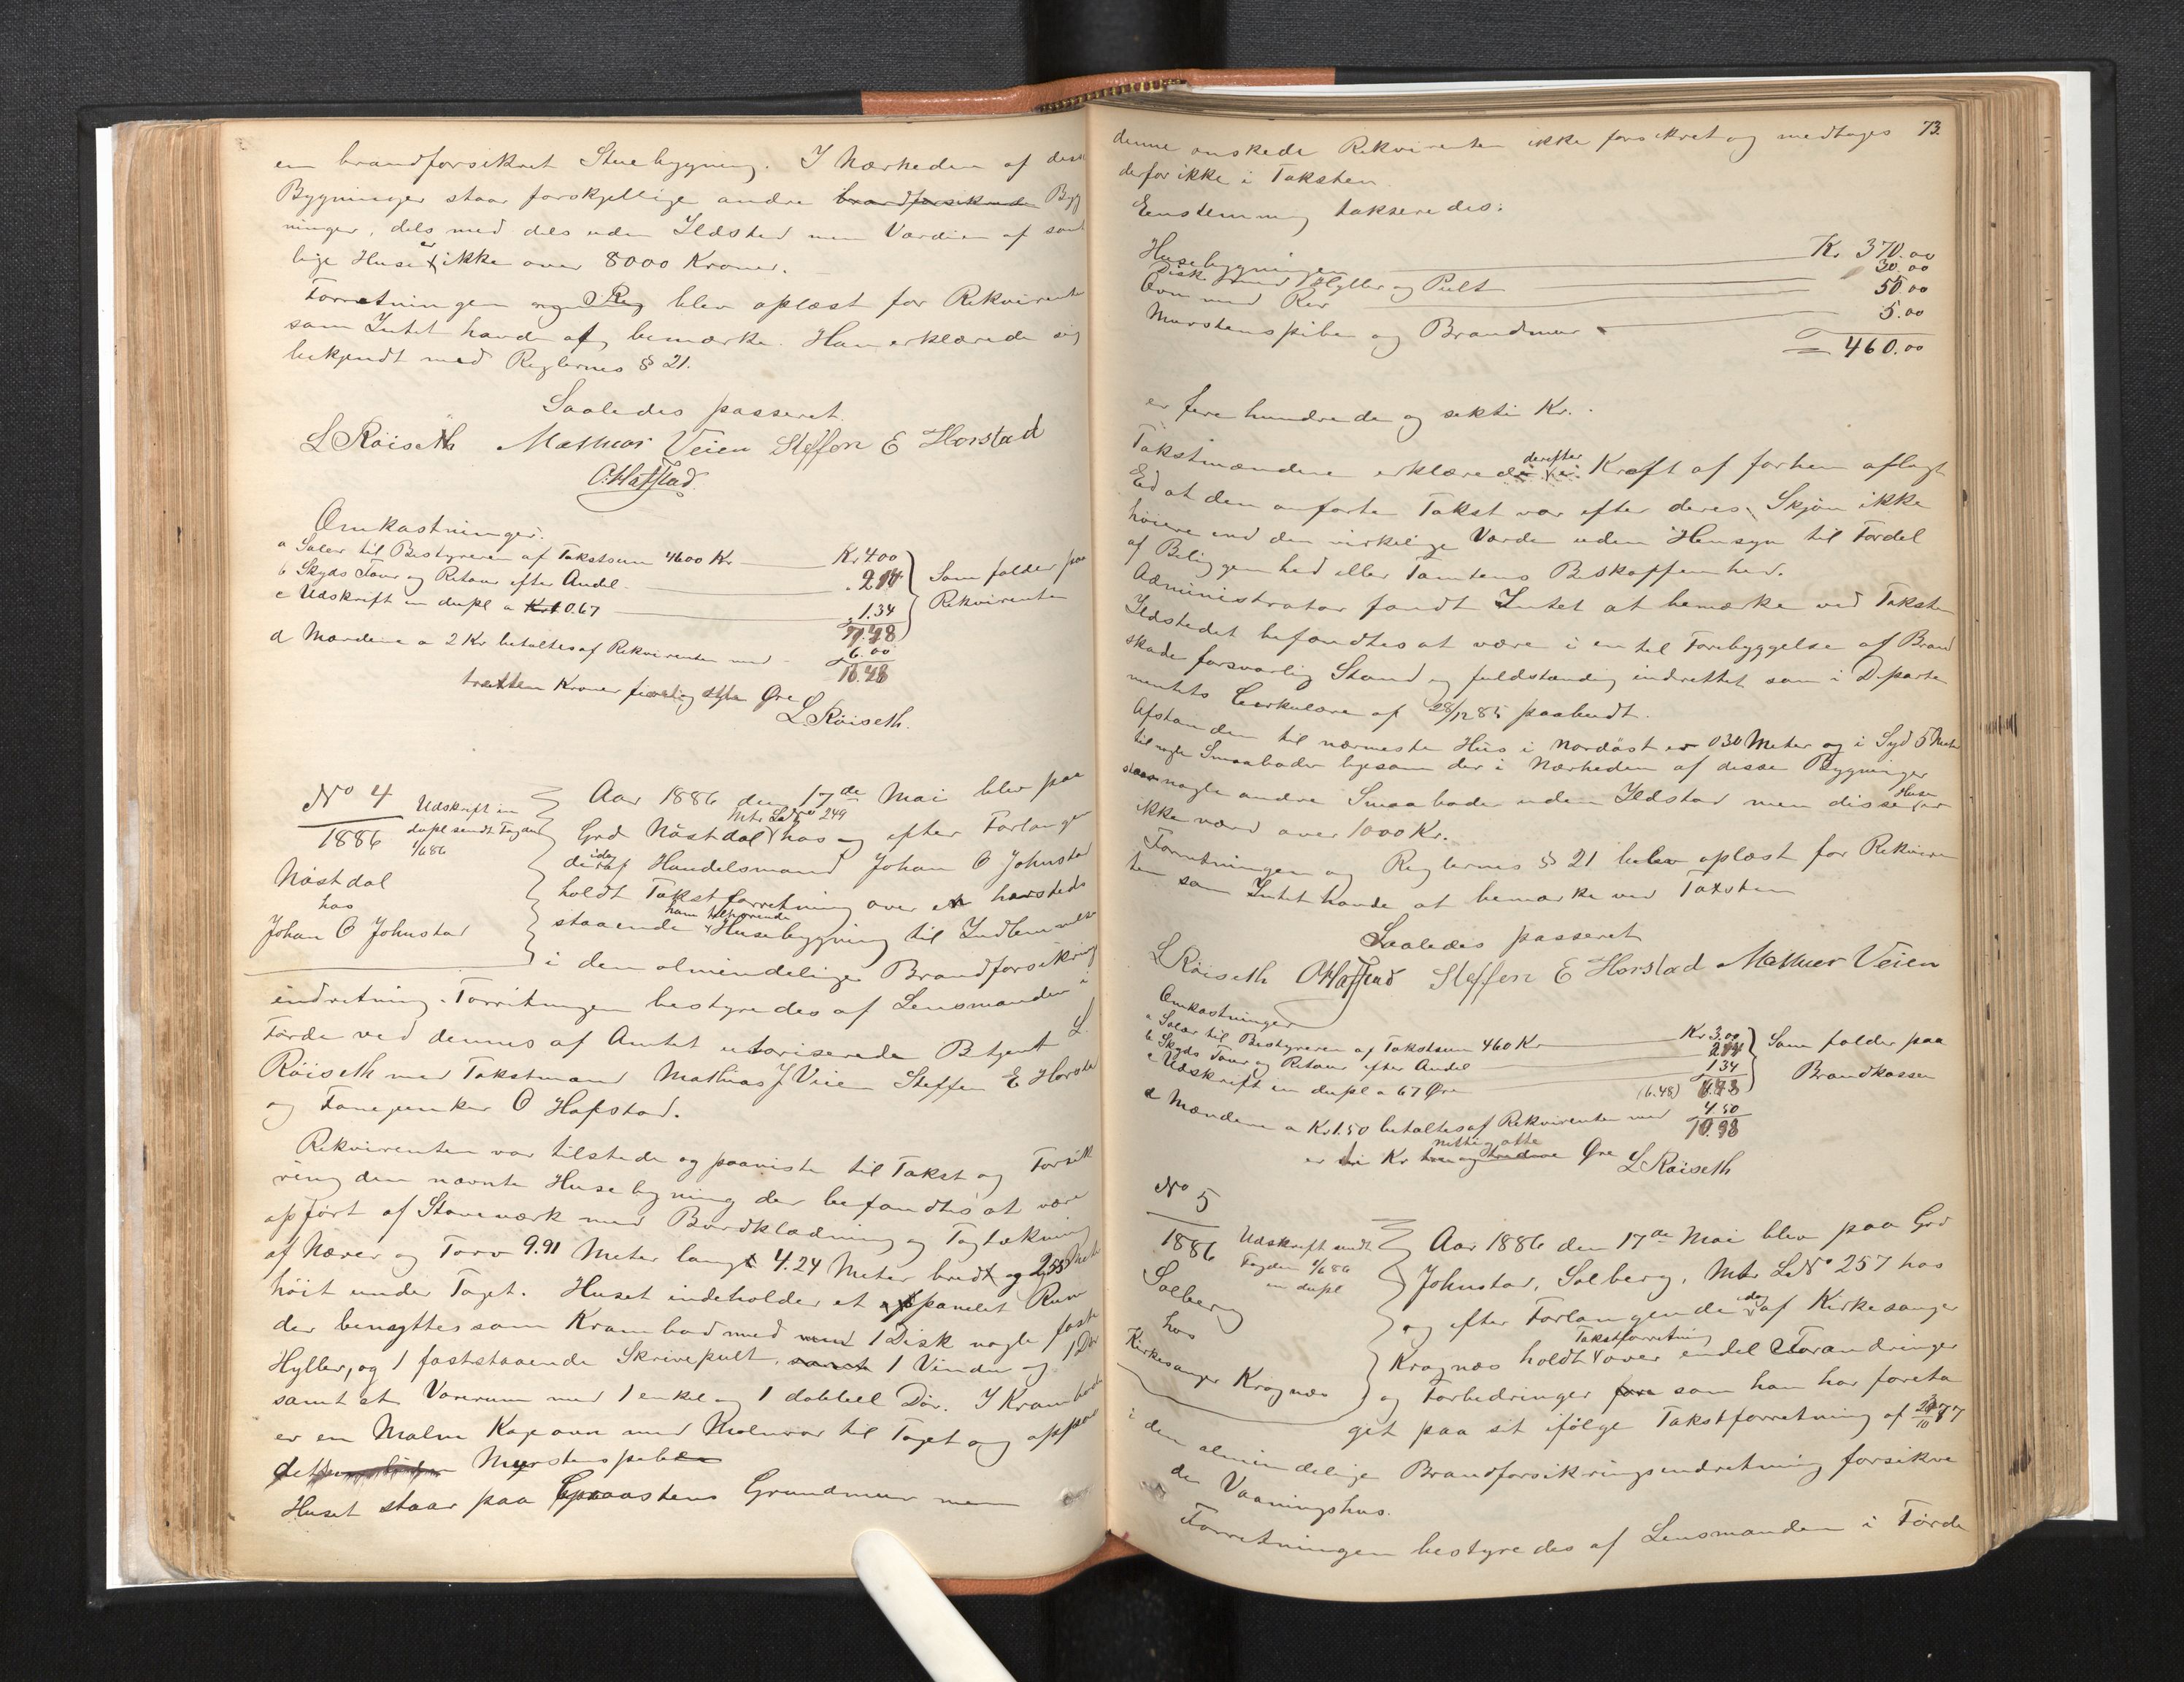 en brandforsikret Stuebygning. I Nærheden af disse
Bygninger staar forskjellige andre brandforsikrede Byg
ninger, dels med dels uden Ildsted men Værdien af saa
lige Huse er ikke over 8000 Kroner.
Forretningen og Reg blev oplæst for Rekvirenten
som Intet havde at bemærke. Han erklærede sig
bekjendt med Reglernes § 21.
Saaledes passeret.
L Röiseth Mathias Veien Steffen E Horstad
O. Hafstad
Omkostninger.
a Salær til Bestyreren af Takstsum 4600 Kr Kr 4.00
b Skyds Tour og Retour efter Andel 2.14
c Udskrift in dupl a 0.67 1.34
7.48
Som falder paa
Rekvirenten
d Mændene a 2 Kr betaltes af Rekvirenten med 6.00
13.48
tretten Kroner førtiog otte Øre
L. Röiseth.
No 4
1886
Udskrift in
dupl sendt Fogden
1/6 86
Nåstdal
hos
Johan O Johnstad
Aar 1886 den 17de Mai blev paa
Grd Nåstdal Mtr Lno 249 hos og efter Forlangen
de idag af Handelsmand Johan O Johnstad
holdt Takstforretning over en hersteds
staaende ham tilhørende Husebygning til Indlemmelse
i den almindelige Brandforsikrings
indretning. Forretningen bestyredes af Lensmanden i
Förde ved dennes af Amtet utoriserede Betjent L.
Röiseth med Takstmænd Mathias J Veien Steffen E Horstad
og Fanejunker O Hafstad.
Rekvirenten var tilstede og paaviste til Takst og Forsik
ring den nævnte Husebygning der befandtes at være
opført af Staveværk med Bordklædning og Tagtækning
af Næver og Torv 9.91 Meter langt 4.24 Meter bredt og 2.55 Meter
høit under Taget. Huset indeholder et panelet Rum
der benyttes som Krambod med 1 Disk nogle faste
Hyller, og 1 faststaaende Skrivepult, samt 1 Vindu og 1 Dør
samt et Varerum med 1 enkel og 1 dobbel Dör. I Kramboden
er en Malm Kagovn med Malmrør til Taget og oppaa
dette Murstenspibe
Huset staar paa Graastens Grundmur men
73.
denne onskede Rekvirenten ikke forsikret og medtages
derfor ikke i Taksten
Eenstemmig takseredes:
Husebygningen Kr 370.00
Disk med Hyller og Pult 30.00
Ovn med Rør 50.00
Murstenspibe og Brandmur 5.00
= 460.00
er fire hundrede og sekti Kr.
Takstmændene erklærede derefter i Kraft af forhen aflagt
Ed at den anførte Takst var efter deres Skjön ikke
höiere end den virkelige Værde uden Hensyn til Fordel
af Beliggenhed eller Tomtens Beskaffenhed.
Administrator fandt Intet at bemærke ved Taksten
Ildstedet befandtes at være i en til Forebyggelse af Brand
skade forsvarlig Stand og fuldstændig indrettet som i Departe
mentets Cirkulære af 28/12 85 paabudt.
Afstanden til nærmeste Hus i Nordöst er 030 Meter og i Syd 5 Meter
til nogle Smaaboder ligesom der i Nærheden af disse Bygninger
staar nogle andre Smaaboder uden Ildsted men disse Huse er
ikke værd over 1000 Kr.
Forretningen og Reglernes § 21 blev oplæst for Rekviren
ten som Intet havde at bemærke ved Taksten
Saaledes passeret
L Röiseth O Hafstad Steffen E Horstad Mathias Veien
Omkostninger
a Salær til Bestyreren af Takstsum 460 Kr Kr 3.00
b Skyds Tour og Retour efter Andel 2.14
c Udskrift in dupl a 67 Øre 1.34
(6.48)
Som falder paa
Brandkassen
d Mændene a Kr 1.50 betaltes af Rekvirenten med 4.50
10.98
er ti Kr nittiog otte Øre
L Röiseth
No 5
1886
Udskrift sendt
Fogden 1/6 86
in dupl
Solberg
hos
Kirkesanger Kragnæs
Aar 1886 den 17de Mai blev paa Grd
Johnstad, Solberg, Mtr LNo 257 hos
og efter Forlangende idag af Kirkesanger
Kragnæs holdt Takstforretning over endel Forandringer
og Forbedringer som han har foreta
get paa sit ifölge Takstforretning af 29/10 77
i den almindelige Brandforsikringsindretning forsikre
de Vaaningshus.
Forretningen bestyredes af Lensmanden i Förde